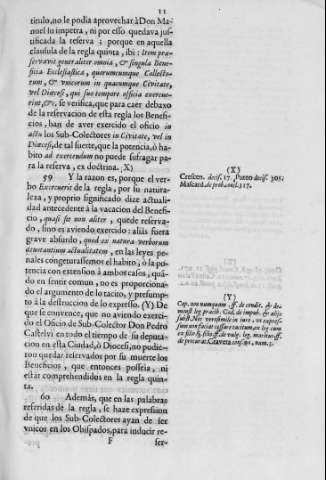 11
titulo, no le podia aprovechar à Don Ma-
nuel lo impetra, ni por esso quedava jus-
tificada la reserva; porque en aquella
clausula de la regla quinta, ibi: Item præ-
servavit generaliter omnia, & singula Bene-
ficia Ecclesiastica, quorumcumque Collecto-
rum, & vnicorum in quacumque Civitate,
vel Diœcesi, qui suo tempore officia exercue-
rint, &c. se verifica, que para caer debaxo
de la reservacion de esta regla los Benefi-
cios, han de aver exercido el oficio in
actu los Sub-Colectores in Civitate, vel in
Diœcesi, de tal suerte, que la potencia, ó ha-
bito ad exercendum no puede sufragar pa-
ra la reserva, ex doctrina. (X)
59 Y la razon es, porque el ver-
bo Exercuerit de la regla, por su natura-
leza, y proprio significado dize actuali-
dad antecedente à la vacacion del Benefi-
cio, quasi se non aliter, quede reserva-
do, sino es aviendo exercido: aliàs fuera
grave absurdo, quod ex natura verborum
actuantium actualitatem, en las leyes pe-
nales congeturassemos el habito, ò la po-
tencia con extension à ambos casos, quã-
do en sentir comun, no es proporciona-
do el argumento de lo tacito, y presump-
to à la destruccion de lo expresso. (Y) De
que se convence, que no aviendo exerci-
do el Oficio de Sub-Colector Don Pedro
Castelvi en todo el tiempo de su deputa-
cion en esta Ciudad, ò Diocesi, no pudie-
ron quedar reservados por su muerte los
Beneficios, que entonces posseia, ni
estàr comprehendidos en la regla quin-
ta.
60 Además, que en las palabras
referidas de la regla, se haze expression
de que los Sub-Colectores ayan de ser
vnicos en los Obispados, para inducir re-
F
ser-
(X)
Crescen. decis. 17. Puteo decis. 305.
Mascard. de probat. 317.
(Y)
Cap. non nunquam
num. 3.